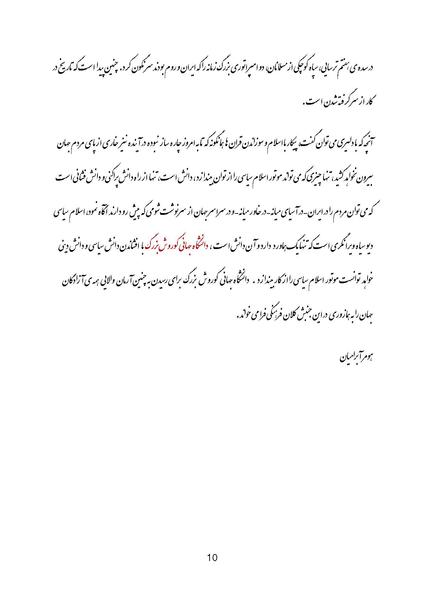 در سده ی هفتم ترسایی، سپاه کوچکی از مسلمانان، دو امپراتوری بزرگ زمانه را که ایران و روم بودند سرنگون کرد. چنین پیدا است که تاریخ در
کار از سر گرفته شدن است.
آنچه که با دلیری می توان گفت، پیکار با اسلام و سوزاندن قرآن ها همانگونه که تا به امروز چاره ساز نبوده در آینده نیز خاری از پای مردم جهان
بیرون نخواهد کشید، تنها چیزی که می تواند موتور اسلام سیاسی را از توان بیندازد، دانش است، تنها از راه دانش پراکنی و دانش فشانی است
که می توان مردم را در ایران - در آسیای میانه - در خاور میانه - و در سراسر جهان از سرنوشت شومی که پیش رو دارند آگاه نمود، اسلام سیاسی
دیو سیاه ویرانگری است که تنها یک پادزهر دارد و آن دانش است، دانشگاه جهانی کوروش بزرگ با افشاندن دانش سیاسی و دانش دینی
خواهد توانست موتور اسلام سیاسی را از کار بیندازد . دانشگاه جهانی کوروش بزرگ برای رسیدن به چنین آرمان والایی همه ی آزادگان
جهان را به همآزوری در این جنبش کلان فرهنگی فرا می خواند.
هومر آبرامیان
10